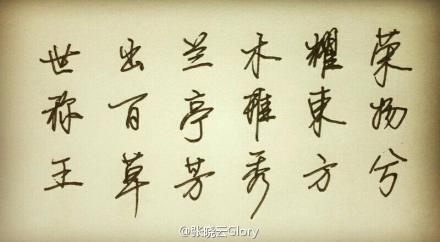 荣扬兮
耀東方
木雅秀
兰亭芳
出百草
世称王
@张晓云Glory